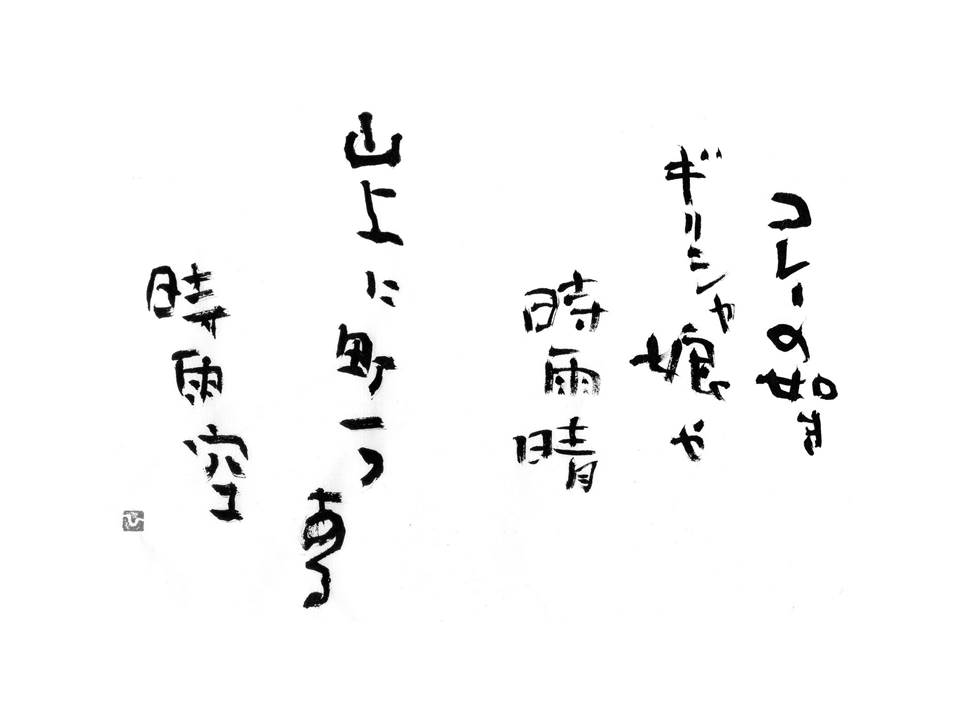 コレーの如き
ギリシャ娘や
時雨晴
山上に町一つ
ある
時雨空